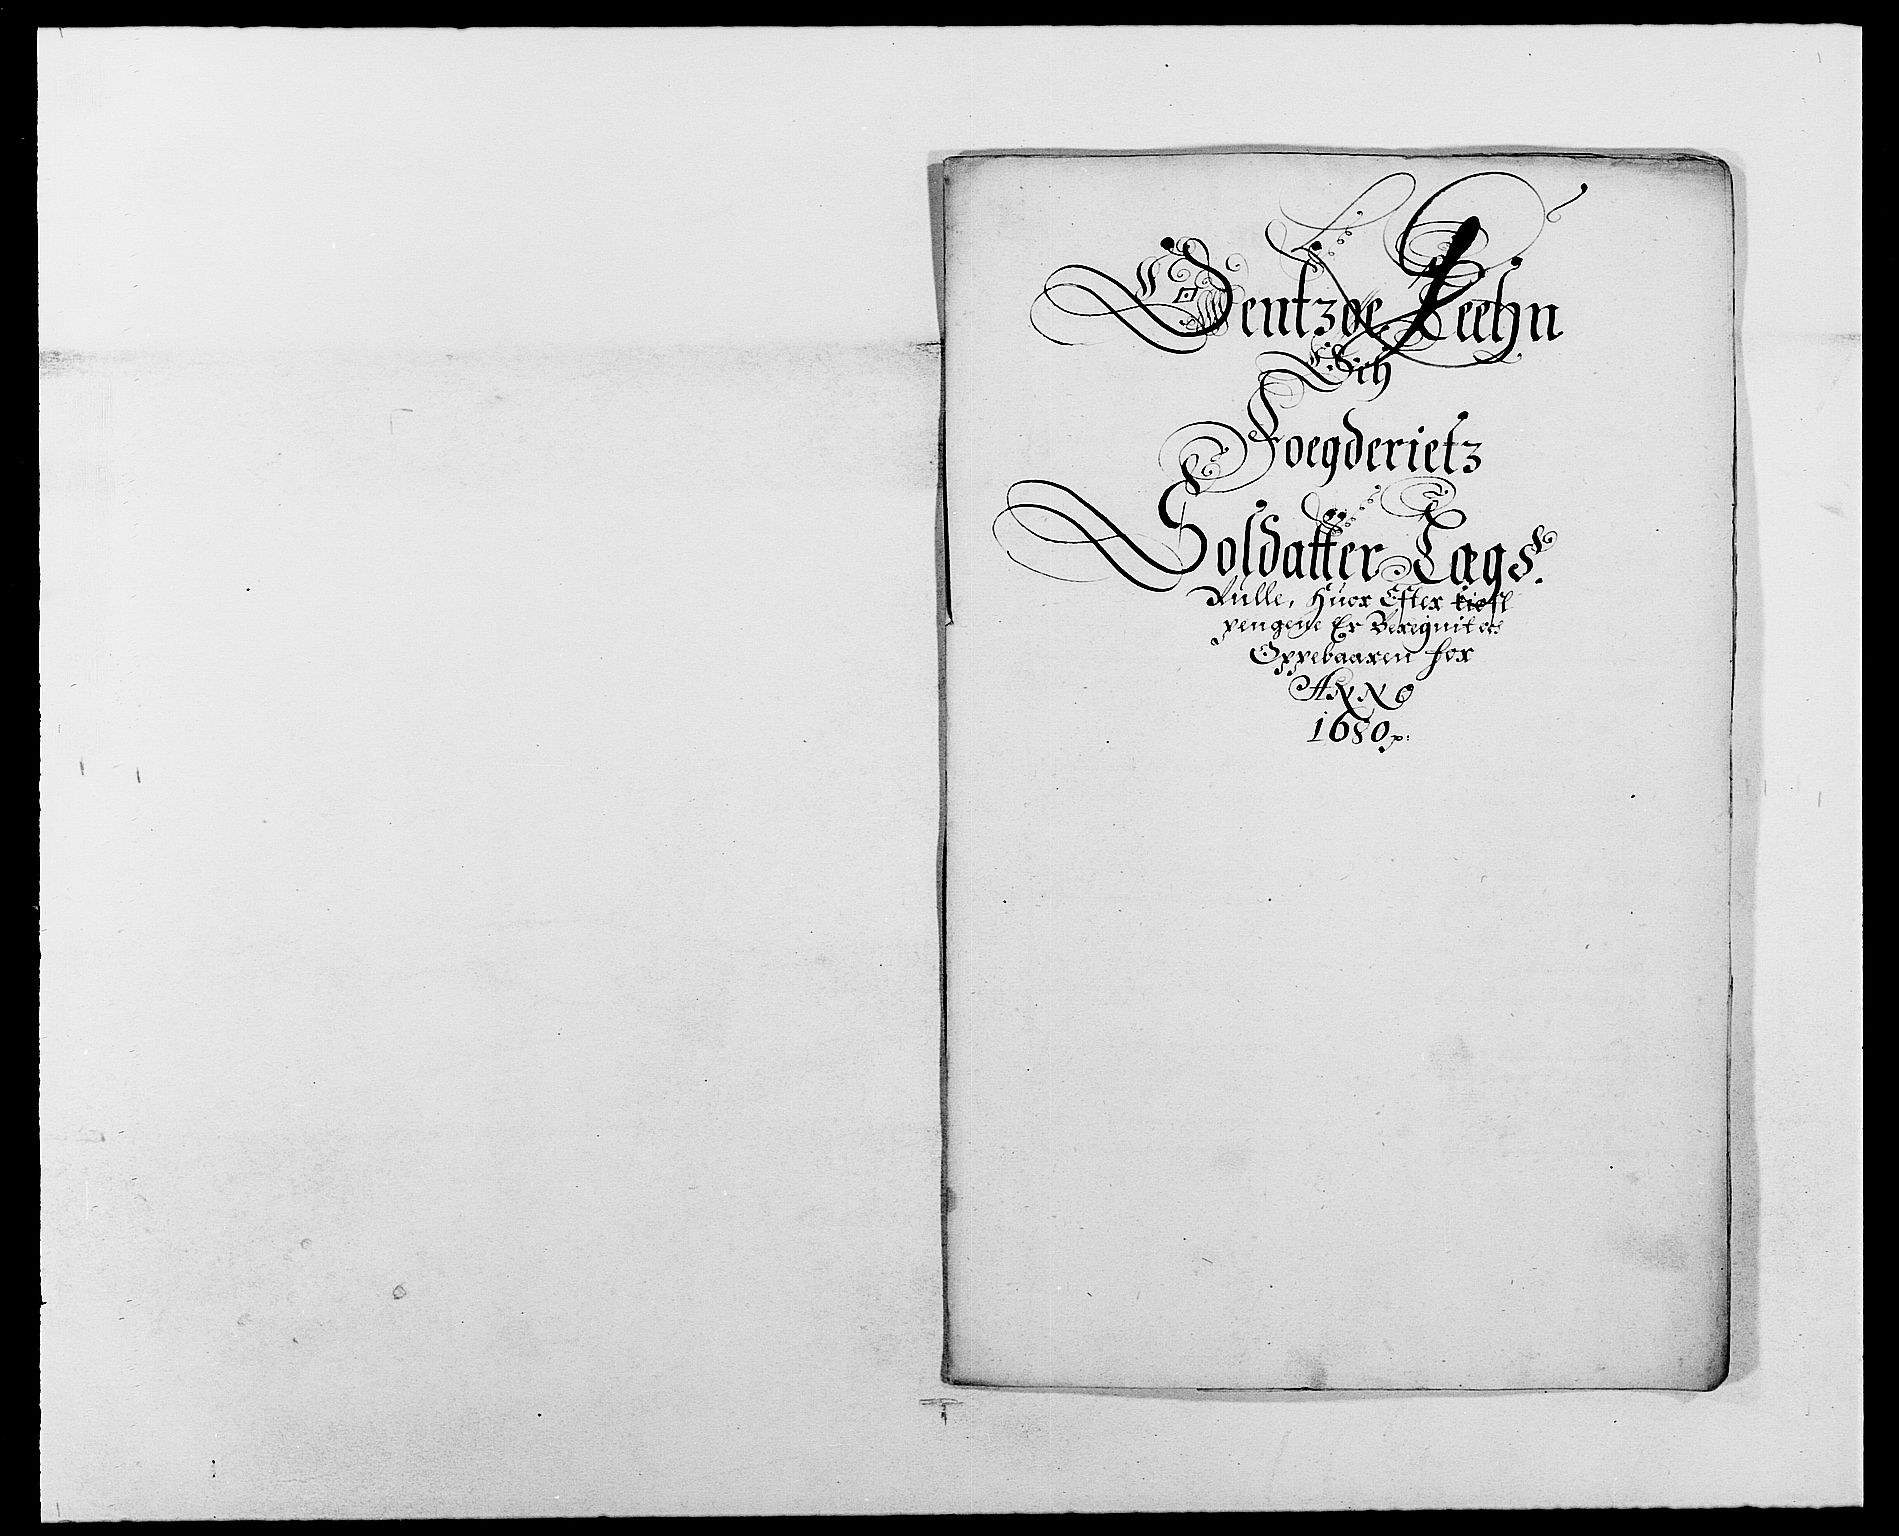 Jentzøe Leehn
Och
Foegderietz
Soldatter Lægs
Rulle, Huor Efter kiøst
pengene Er Beregnit oc
Oppebaaren for
ANNO
1680 p: